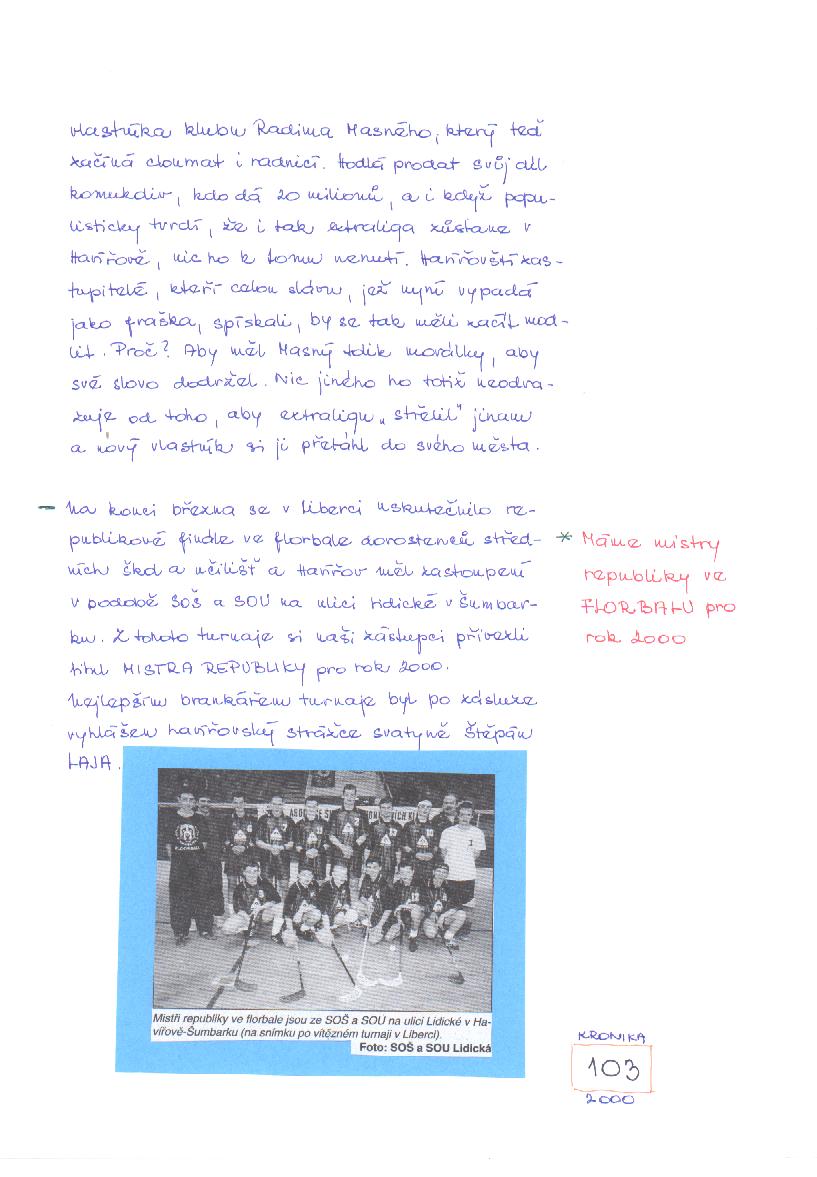 vlastníka klubu Radima Masného, který teď
začíná cloumat i radnicí. Hodlá prodat svůj díl
komukoliv, kdo dá 20 milionů, a i když popu-
listicky tvrdí, že i tak extraliga zůstane v
Havířově, nic ho k tomu nenutí. Havířovští zas-
tupitelé, kteří celou slávu, jež nyní vypadá
jako fraška, spískali, by se tak měli začít mod-
lit. Proč? Aby měl Masný tolik morálky, aby
své slovo dodržel. Nic jiného ho totiž neodra-
zuje od toho, aby extraligu "střelil" jinam
a nový vlastník si ji přetáhl do svého města.
- Na konci března se v Liberci uskutečnilo re-
publikové finále ve florbale dorostenců střed-
ních škol a učilišť a Havířov měl zastoupení
v podobě SOŠ a SOU na ulici Lidické v Šumbar-
ku. Z tohoto turnaje si naši zástupci přivezli
titul MISTRA REPUBLIKY pro rok 2000.
Nejlepším brankářem turnaje byl po zásluze
vyhlášen havířovský strážce svatyně Štěpán
LAJA.
* Máme mistry
republiky ve
FLORBALU pro
rok 2000
Mistři republiky ve florbale jsou ze SOŠ a SOU na ulici Lidické v Ha-
vířově-Šumbarku (na snímku po vítězném turnaji v Liberci).
Foto: SOŠ a SOU Lidická
KRONIKA
103
2000